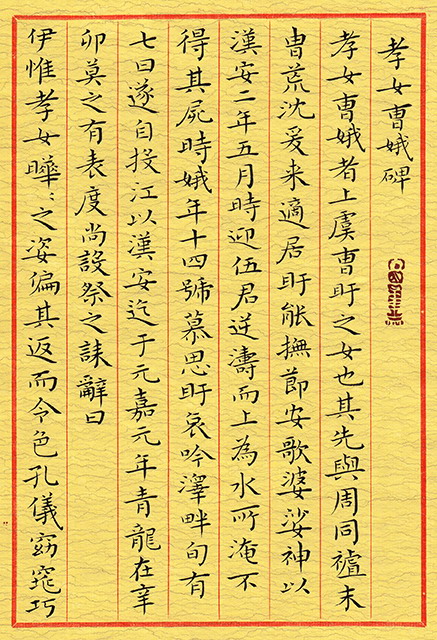 孝女曹娥碑
孝女曹娥者上虞曹盱之女也其先與周同祖末
胄荒沈爰来適居盱能撫節安歌婆娑神以
漢安二年五月時迎伍君逆濤而上為水所淹不
得其屍時娥年十四號慕思盱哀吟澤畔旬有
七日遂自投江以漢安迄于元嘉元年青龍在辛
卯莫之有表度尚設祭之誄辭曰
伊惟孝女曄〻之姿偏其返而令色孔儀窈窕巧